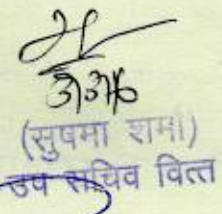 (सुषमा शर्मा)
उप सचिव वित्त